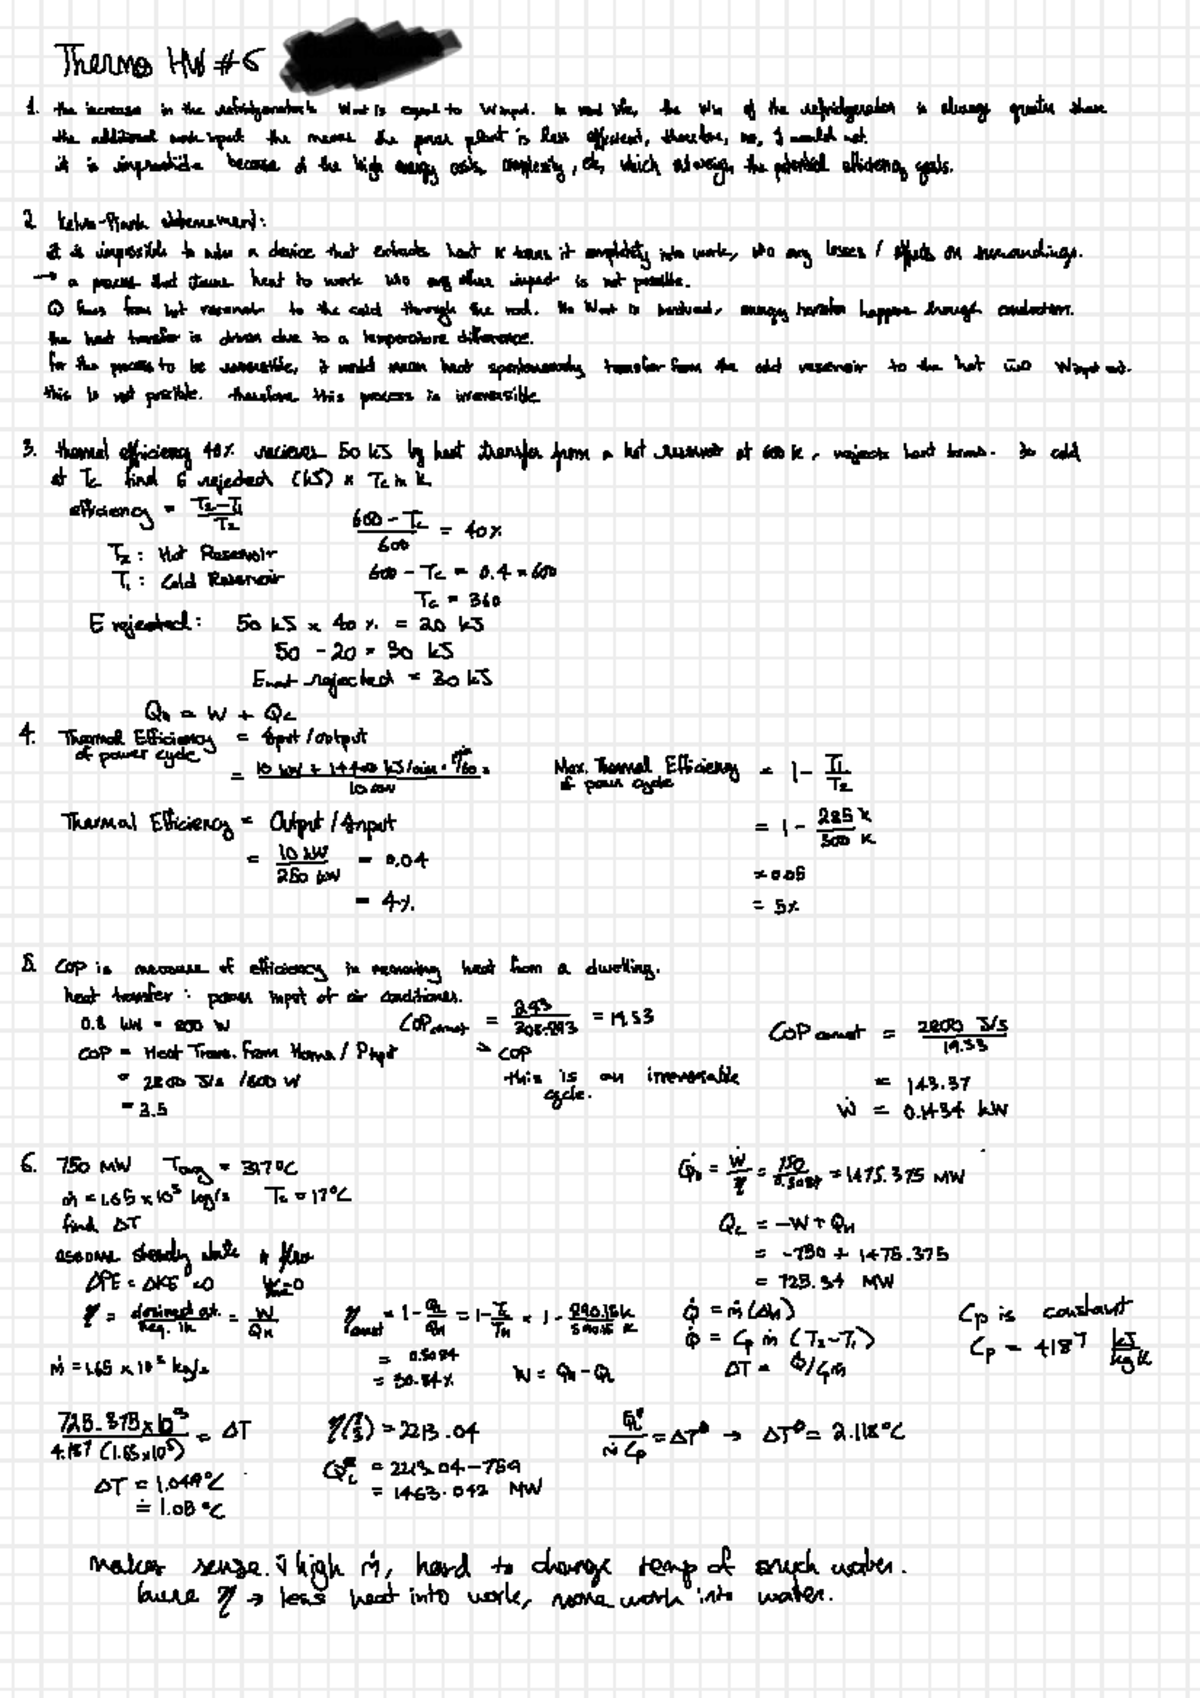 Thermo HW #6
1. the increase in the refridgerator's Wnet is equal to Winput. in real life, the Win of the refridgerator is always greater than
the additional work input the means the power plant is less efficient, therefore, no, I would not.
it is impractical because of the high energy costs, complexity, etc, which outweigh the potential efficiency goals.
2. Kelvin-Plank statement:
it is impossible to make a device that extracts heat & turns it completely into work, w/o any losses / effects on surroundings.
→ a process that turns heat to work w/o any other impact is not possible.
Q flows from hot reservoir to the cold through the rod. No Wout is involved, energy transfer happens through conduction.
the heat transfer is driven due to a temperature difference.
for the process to be reversible, it would mean heat spontaneously transfer from the cold reservoir to the hot w/o
this is not possible. therefore this process is irreversible
3. thermal efficiency 40% recieves 50 kJ by heat transfer from a hot reservoir at 600 K, rejects heat to cold
at Tc find E rejected (kJ) & Tc in K
efficiency = T2-T1/T2
600 - Tc/600 = 40%
T2 : Hot Reservoir
T1 : Cold Reservoir
600 - Tc = 0.4 × 600
Tc = 360
E rejected: 50 kJ × 40 % = 20 kJ
50 - 20 = 30 kJ
Eheat rejected = 30 kJ
QH = W + QC
4. Thermal Efficiency of power cycle = Input / output
= 10 kW + 14400 kJ/min · /60 s / 10 kW
Thermal Efficiency = Output / Input
= 10 kW / 250 kW = 0.04
= 4%
Max. Thermal Efficiency of power cycle = 1 - T1/T2
= 1 - 285 K / 300 K
= 0.05
= 5%
5. COP is measure of efficiency in removing heat from a dwelling.
heat transfer : power input of air conditioner.
0.8 kW = 800 W
COP = Heat Trans. from Home / Pinput
= 2800 J/s / 800 W
= 3.5
COPcarnot = 293 / 308-293 = 19.53
> COP
this is an irreversible
cycle.
COP carnot = 2800 J/s / 19.53
= 143.37
Ẇ = 0.1434 kW
6. 750 MW Tavg = 317°C
ṁ = 1.65 × 10⁵ kg/s Tc = 17°C
find ΔT
assume steady state & flow
ΔPE = ΔKE = 0
η = desired out / req. in = W / QH
ṁ = 1.65 × 10⁵ kg/s
ηcarnot = 1 - QC/QH = 1 - Tc/TH = 1 - 290.15 K / 590.15 K
= 0.5084
= 50.84%
W = QH - QC
Q̇H = Ẇ/η = 750/0.5084 = 1475.375 MW
QC = -W + QH
= -750 + 1475.375
= 725.34 MW
Q̇ = ṁ(Δh)
Q̇ = Cp ṁ (T2-T1)
ΔT = Q̇/Cpṁ
Cp is constant
Cp = 4.187 kJ/kg K
725.375 × 10³ / 4.187 (1.65×10⁵) = ΔT
ΔT = 1.049°C
= 1.05 °C
η(2/3) = 2213.04
= 2213.04 - 750
= 1463.042 MW
/ ṁ Cp = ΔT → ΔT = 2.118°C
makes sense. high ṁ, hard to change temp of much water.
η → less heat into work, more work into water.